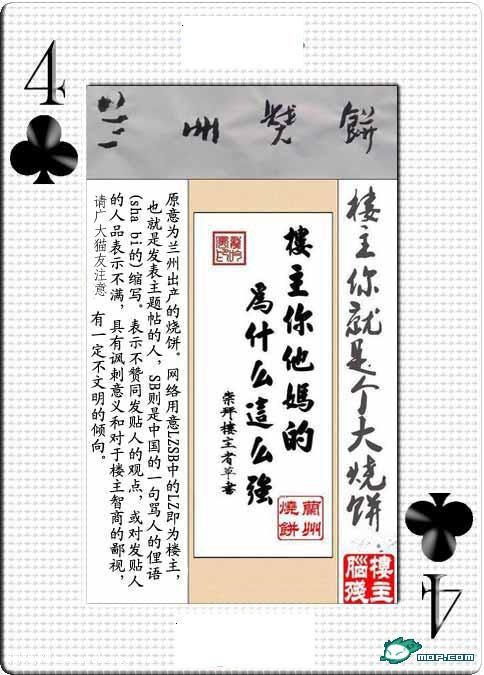 4
兰州烧餅
樓主你就是个大烧餅
樓主
腦殘
樓主你他媽的
爲什么這么強
崇拜樓主者草書
蘭州
燒餅
原意为兰州出产的烧饼。网络用意LZSB中的LZ即为楼主，
也就是发表主题帖的人，SB则是中国的一句骂人的俚语
(sha bi的)缩写。表示不赞同发贴人的观点，或对发贴人
的人品表示不满，具有讽刺意义和对于楼主智商的鄙视，
请广大猫友注意 有一定不文明的倾向。
4
MOP.COM